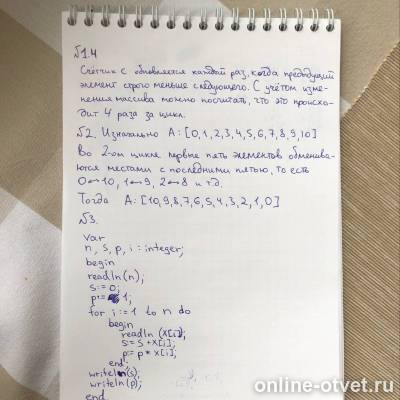 №1. 4
Счётчик с обновляется каждый раз, когда предыдущий
элемент строго меньше следующего. С учётом изме-
нения массива можно посчитать, что это происхо-
дит 4 раза за цикл.
№2. Изначально A: [0,1,2,3,4,5,6,7,8,9,10]
Во 2-ом цикле первые пять элементов обменива-
ются местами с последними пятью, то есть
0↔10, 1↔9, 2↔8 и т.д.
Тогда A: [10,9,8,7,6,5,4,3,2,1,0]
№3.
var
n, s, p, i : integer;
begin
readln(n);
s:= 0;
p:= 1;
for i := 1 to n do
begin
readln (x[i]);
s:= s + x[i];
p:= p * x[i];
end;
writeln(s);
writeln(p);
end.
online-otvet.ru